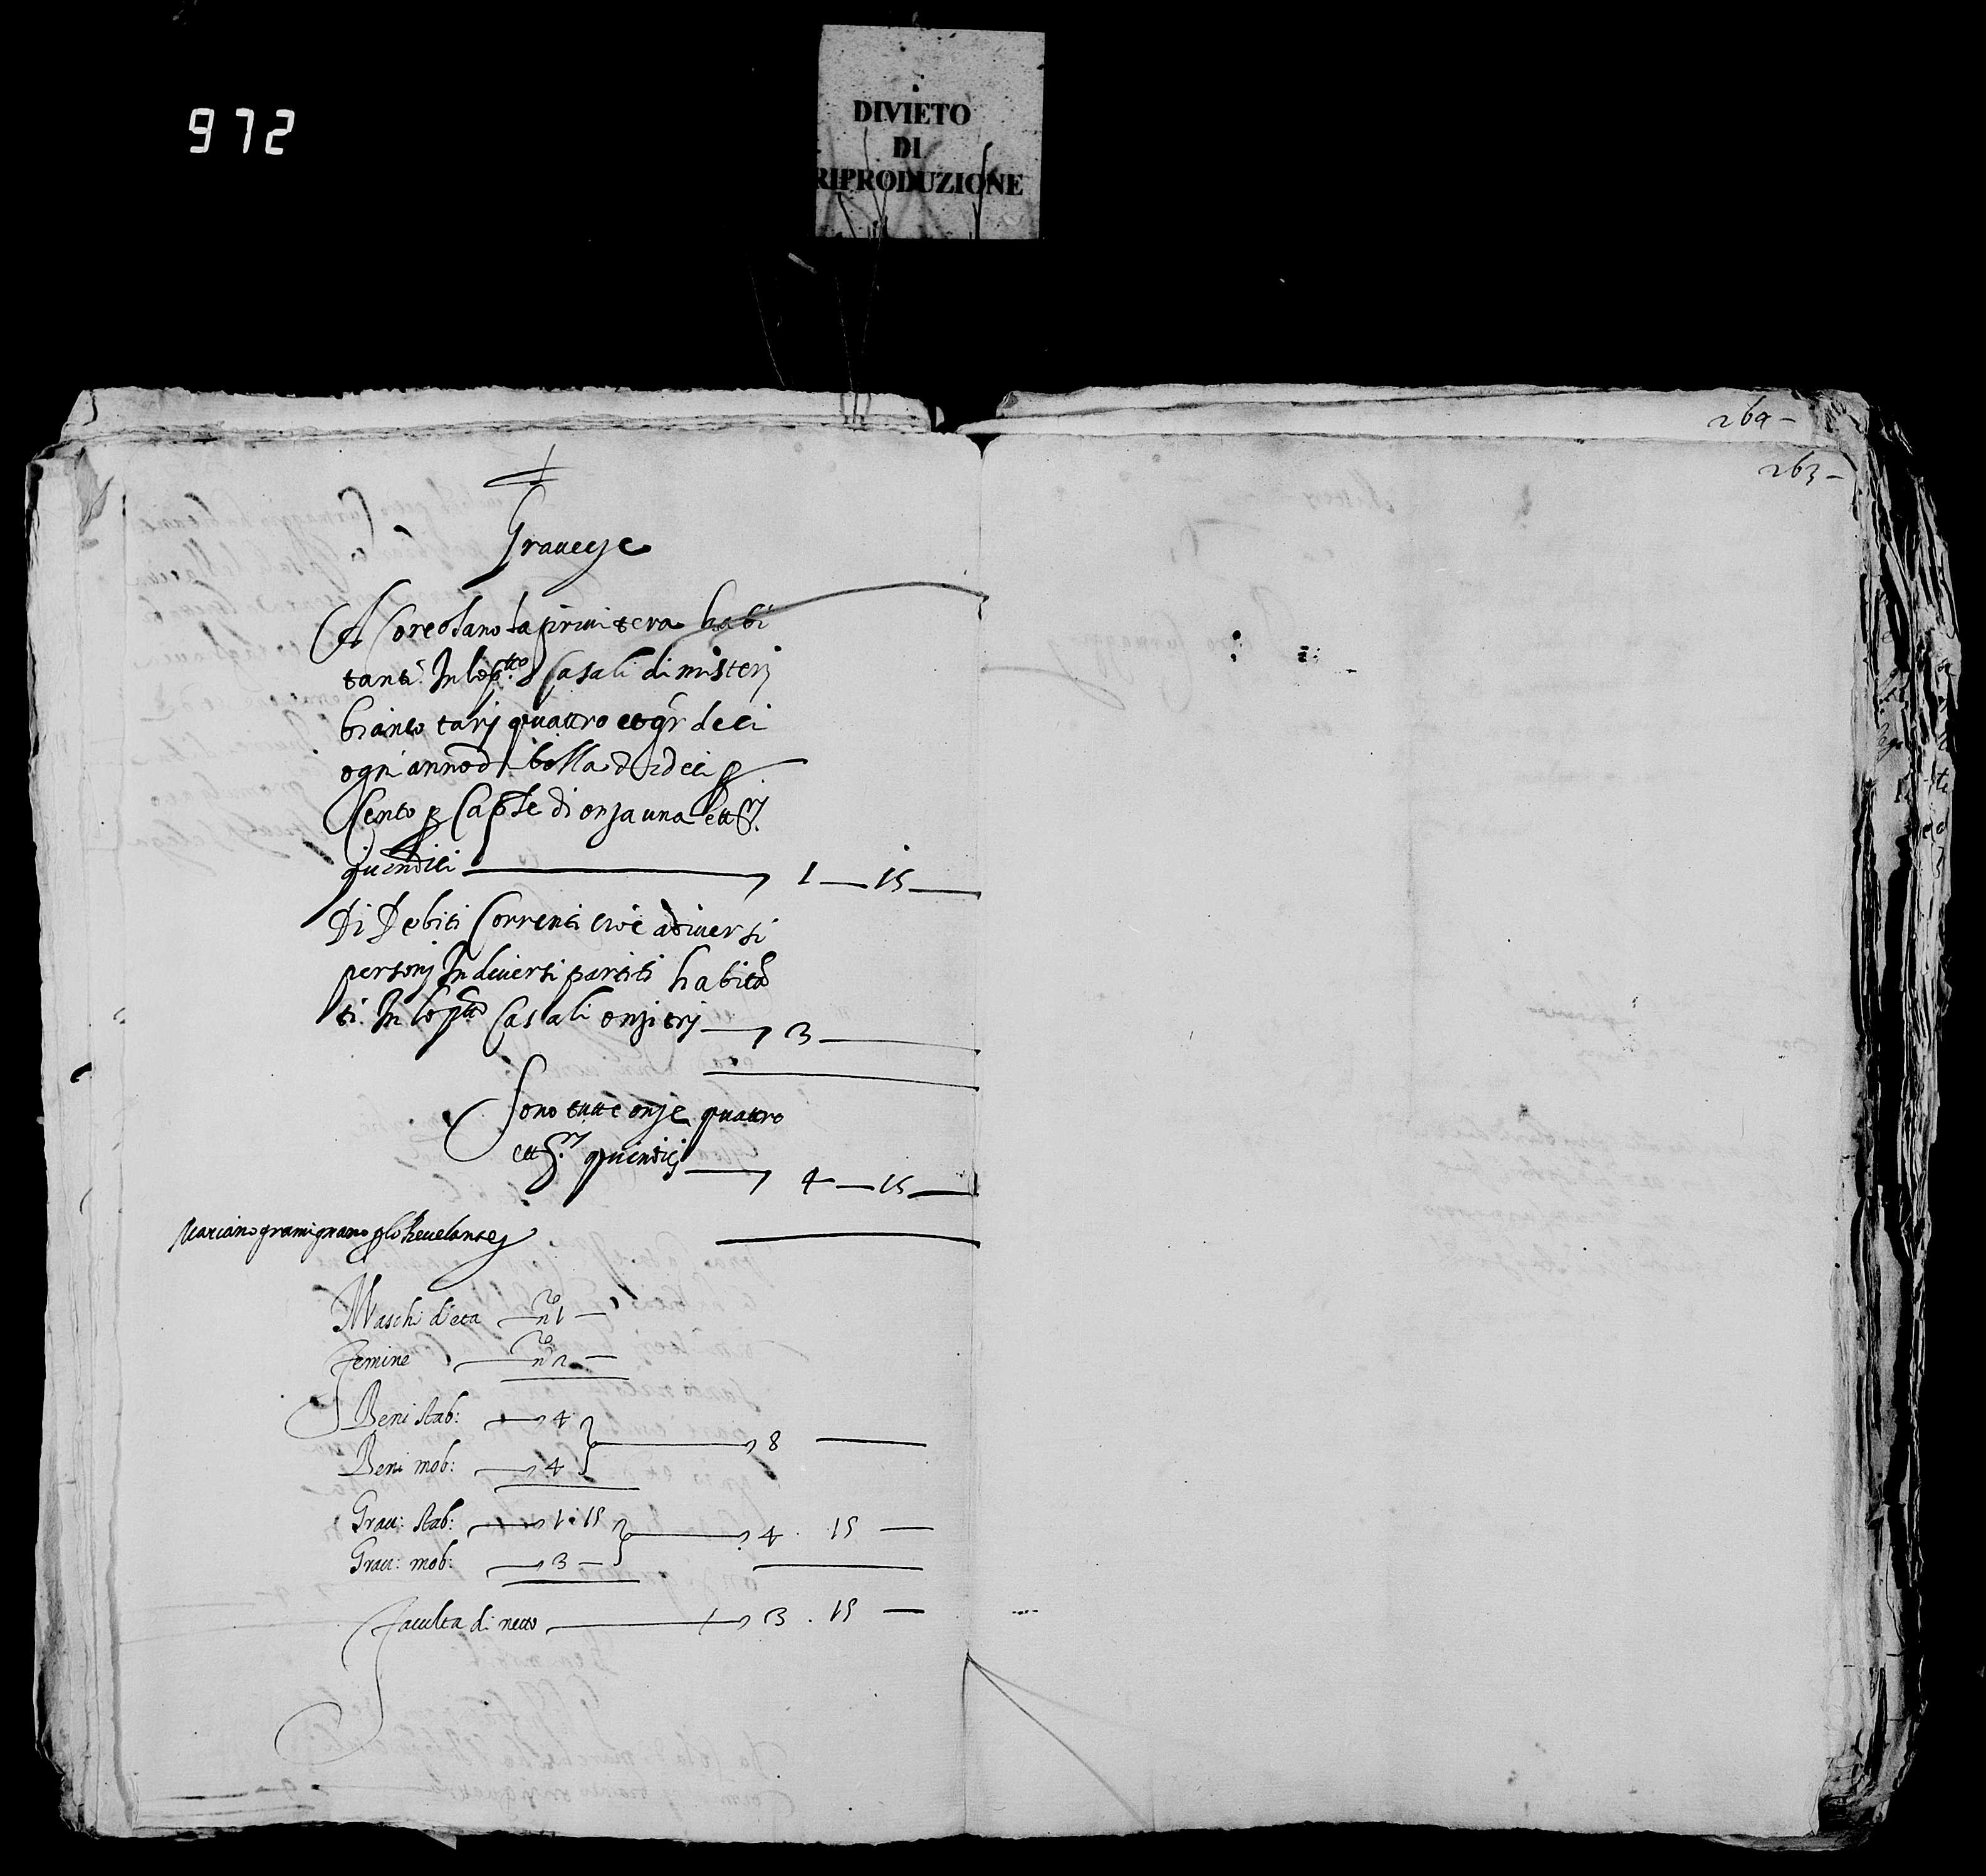 972
DIVIETO
DI
RIPRODUZIONE
269 -
263 -
Gravezze
A Coreolano la primitera habi
tanti In lo p.tto Casali di misteri
bianco tarj quattro et gr deci
ogni anno di bolla di deci p
Cento p Cap.le di onza una et tt.rj
quindici 1 — 15 —
Di Debiti Correnti cioè a diversi
personj In diversi partiti habitã
ti In lo p.tto Casali onzi trj 3 —
Sono tutte onze quattro
et tt.rj quindicj 4 — 15 —
Mariano gramignano p lo Revelante
Maschi d'eta — n.ro 1 —
Femine — n.ro 2 —
Beni stab: 4
8 —
Beni mob: 4
Grav: stab: 1. 15
4 . 15 —
Grav: mob: 3 —
Faculta di netto 3 . 15 —